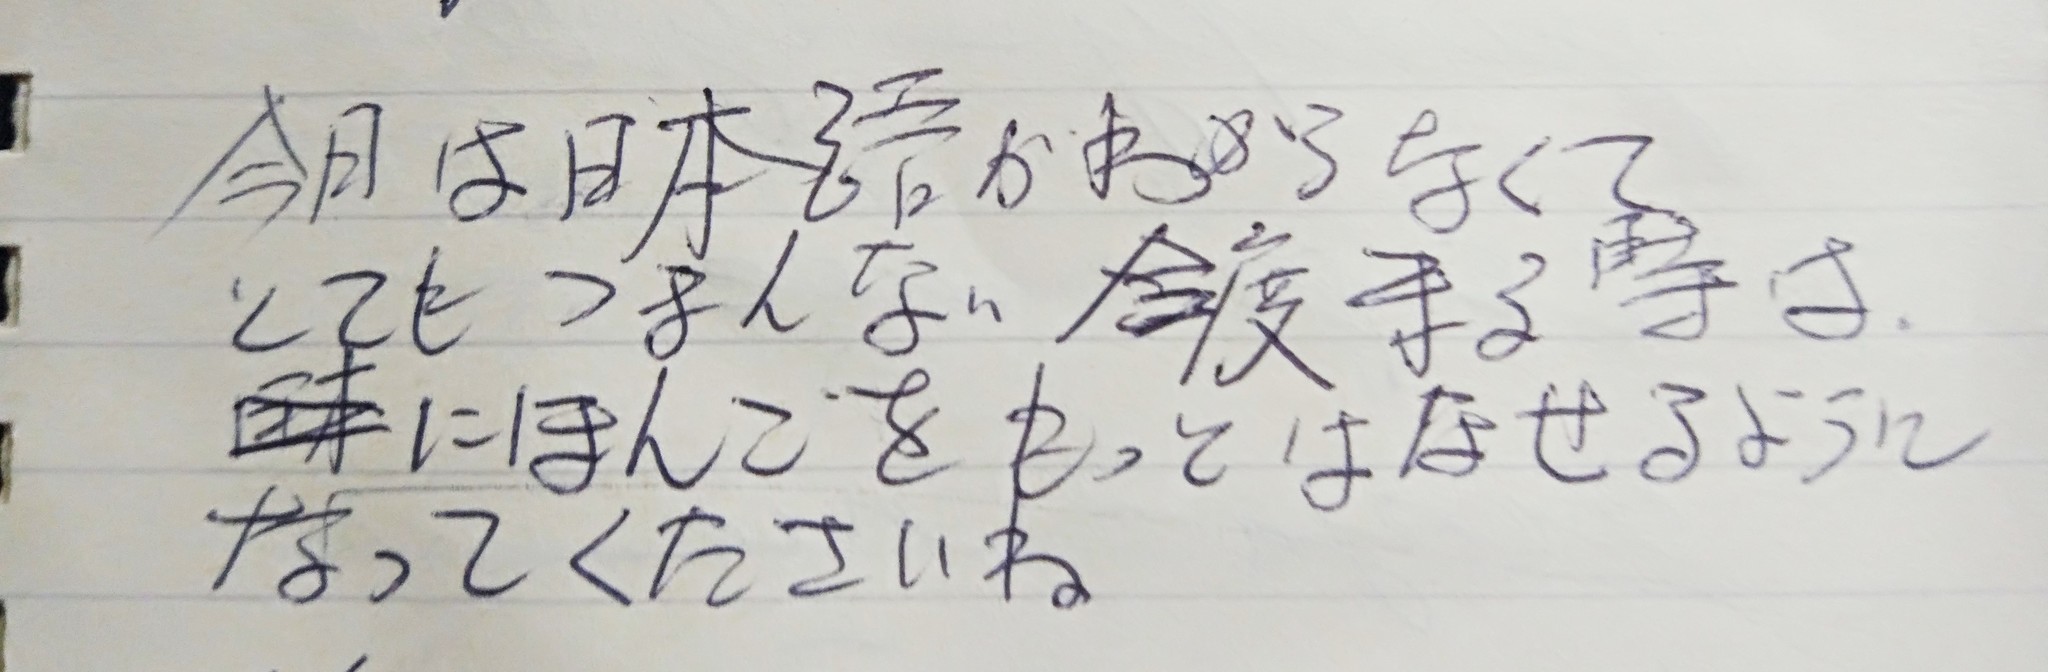 今日は日本語がわからなくて
とてもつまんない 今度来る時は
にほんごをもっとはなせるように
なってくたさいね